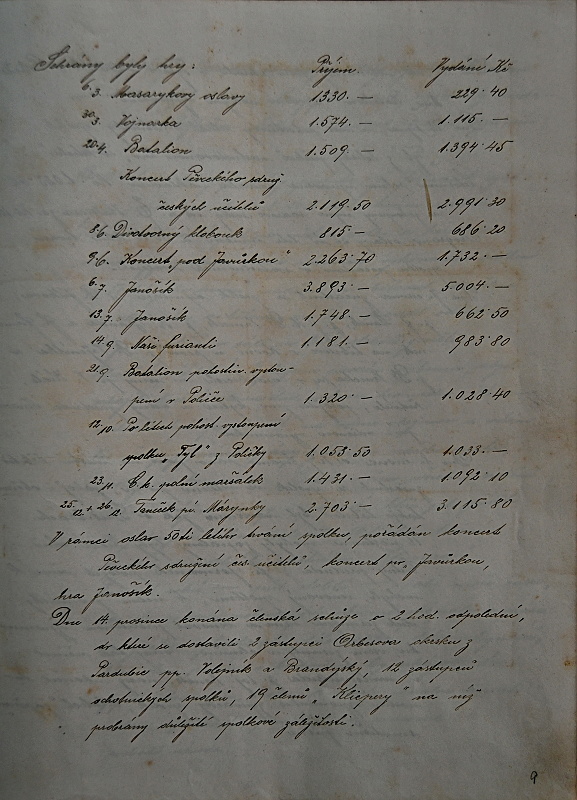 Sehrány byly hry: Příjem. Vydání Kč
6./3. Masarykovy oslavy 1330.— 229.40
30./3. Vojnarka 1.574.— 1.115.—
20./4. Batalion 1.509.— 1.394.45
Koncert Pěveckého sdruž.
českých učitelů 2.119.50 2.991.30
8./6. Divotvorný klobouk 815.— 686.20
9./6. Koncert „pod Javůrkou" 2.263.70 1.732.—
6./7. Janošík 3.893.— 5.004.—
13./7. Janošík 1.748.— 662.50
14./9. Naši furianti 1.181.— 983.80
21./9. Batalion pohostin. vystou-
pení v Poličce 1.320.— 1.028.40
12./10. Po letech pohost. vystoupení
spolku „Tyl" z Poličky 1.053.50 1.033.—
23./11. C. k. polní maršálek 1.431.— 1.092.10
25./12. + 26./12. Taneček pí. Márynky 2.703.— 3.115.80
V rámci oslav 50ti letého trvání spolku, pořádán koncert
Pěveckého sdružení čes. učitelů, koncert pod Javůrkou,
hra Janošík.
Dne 14. prosince konána členská schůze o 2 hod. odpolední,
do které se dostavili 2 zástupci Arbesova okrsku z
Pardubic pp. Volejník a Brandýský, 12 zástupců
ochotnických spolků, 19 členů „Klicpery" na níž
probrány důležité spolkové záležitosti.
9